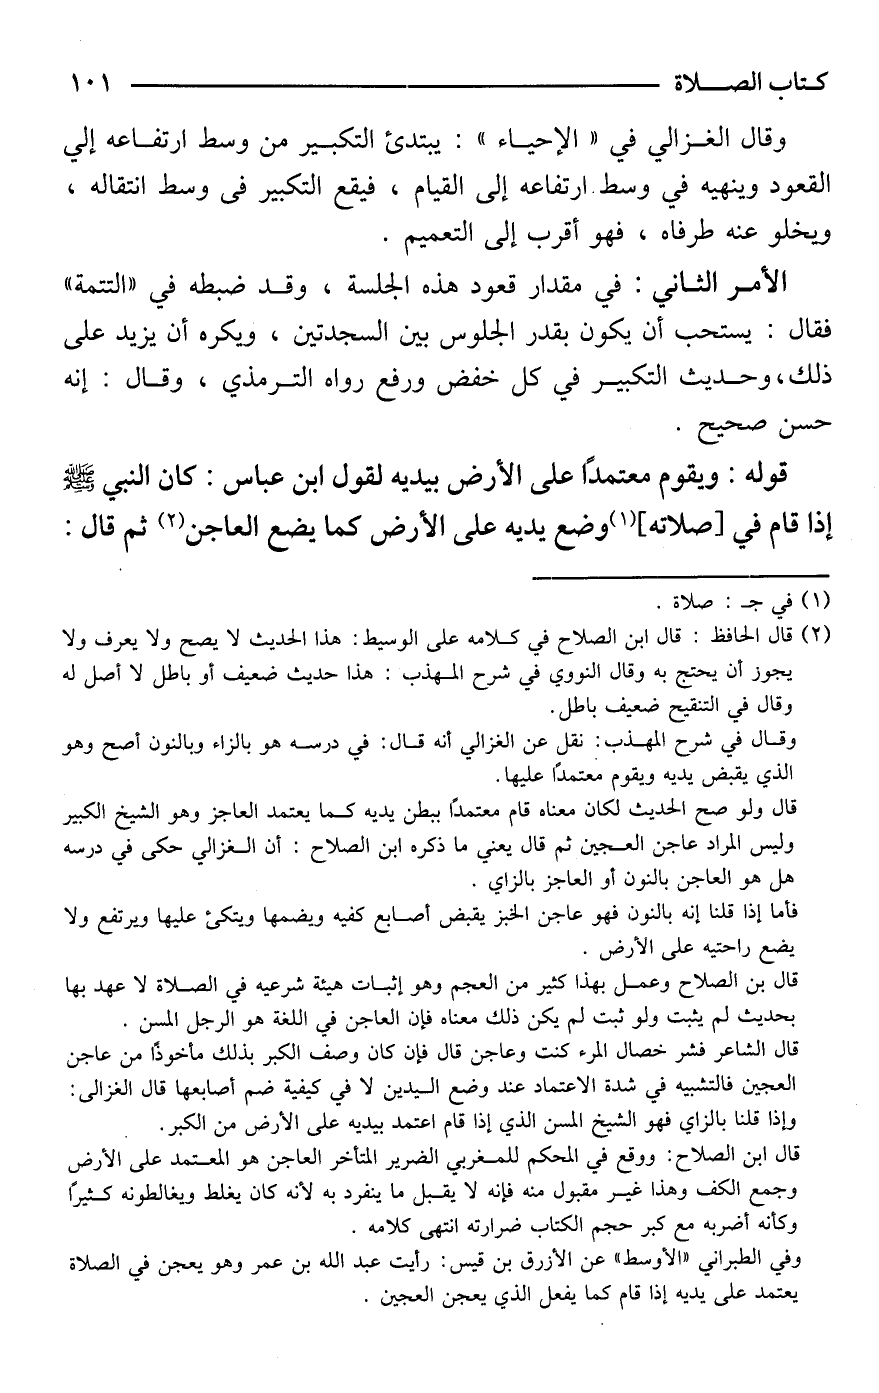 كتاب الصـــلاة ١٠١
وقال الغـزالي في « الإحيـاء » : يبتدئ التكبـير من وسط ارتفـاعه إلي
القعود وينهيه في وسط ارتفاعه إلى القيام ، فيقع التكبير فى وسط انتقاله ،
ويخلو عنه طرفاه ، فهو أقرب إلى التعميم .
الأمـر الثـاني : في مقدار قعود هذه الجلسة ، وقـد ضبطه في «التتمة»
فقال : يستحب أن يكون بقدر الجلوس بين السجدتين ، ويكره أن يزيد على
ذلك، وحـديث التكبيـر في كل خفض ورفع رواه التـرمذي ، وقـال : إنه
حسن صحيح .
قوله : ويقوم معتمدًا على الأرض بيديه لقول ابن عباس : كان النبي ﷺ
إذا قام في [صلاته](١) وضع يديه على الأرض كما يضع العاجن(٢) ثم قال :
(١) في جـ : صلاة .
(٢) قال الحافظ : قال ابن الصلاح في كـلامه على الوسيط: هذا الحديث لا يصح ولا يعرف ولا
يجوز أن يحتج به وقال النووي في شرح المـهذب : هذا حديث ضعيف أو باطل لا أصل له
وقال في التنقيح ضعيف باطل.
وقـال في شرح المهـذب: نقل عن الغزالي أنه قـال: في درسـه هو بالزاء وبالنون أصح وهو
الذي يقبض يديه ويقوم معتمدًا عليها.
قال ولو صح الحديث لكان معناه قام معتمدًا ببطن يديه كـما يعتمد العاجز وهو الشيخ الكبير
وليس المراد عاجن العـجين ثم قال يعني ما ذكره ابن الصلاح : أن الـغزالي حكى في درسه
هل هو العاجن بالنون أو العاجز بالزاي .
فأما إذا قلنا إنه بالنون فهو عاجن الخبز يقبض أصـابع كفيه ويضمها ويتكئ عليها ويرتفع ولا
يضع راحتيه على الأرض .
قال بن الصلاح وعمـل بهذا كثير من العجم وهو إثبـات هيئة شرعيه في الصـلاة لا عهد بها
بحديث لم يثبت ولو ثبت لم يكن ذلك معناه فإن العاجن في اللغة هو الرجل المسن .
قال الشاعر فشر خصال المرء كنت وعاجن قال فإن كان وصف الكبر بذلك مأخوذًا من عاجن
العجين فالتشبيه في شدة الاعتماد عند وضع الـيدين لا في كيفية ضم أصابعها قال الغزالى:
وإذا قلنا بالزاي فهو الشيخ المسن الذي إذا قام اعتمد بيديه على الأرض من الكبر.
قال ابن الصلاح: ووقع في المحكم للمـغربي الضرير المتأخر العاجن هو المعـتمد على الأرض
وجمع الكف وهذا غيـر مقبول منه فإنه لا يقـبل ما ينفرد به لأنه كان يغلط ويغالطونه كـثيرًا
وكأنه أضربه مع كبر حجم الكتاب ضرارته انتهى كلامه .
وفي الطبراني «الأوسط» عن الأزرق بن قيس: رأيت عبد الله بن عمر وهو يعجن في الصلاة
يعتمد على يديه إذا قام كما يفعل الذي يعجن العجين .